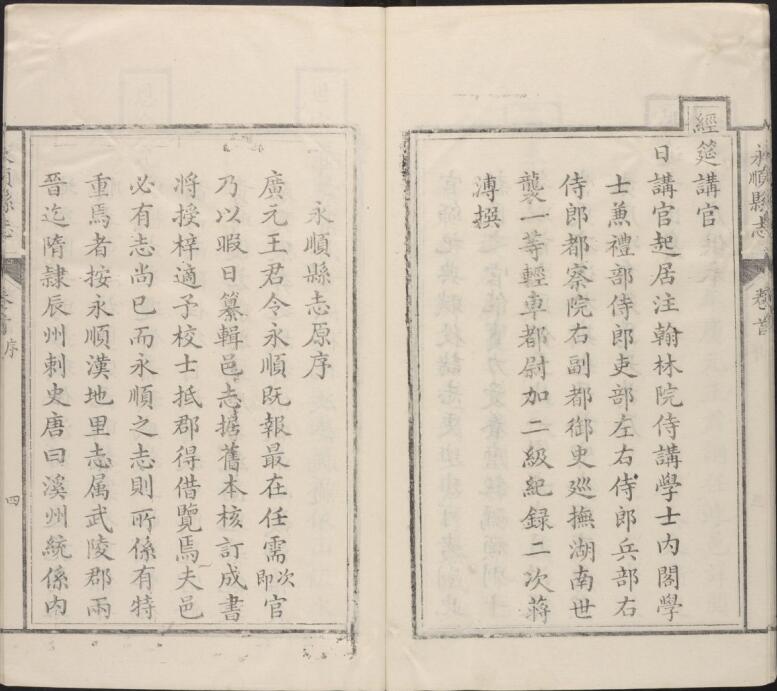 永順縣志
卷首
經筵講官
日講官起居注翰林院侍講學士内閣學
士兼禮部侍郎吏部左右侍郎兵部右
侍郎都察院右副都御史廵撫湖南世
襲一等輕車都尉加二級紀録二次蔣
溥撰
永順縣志原序
廣元王君令永順既報最在任需次即官
乃以暇日纂輯邑志據舊本核訂成書
將授梓適予校士抵郡得借覽焉夫邑
必有志尚已而永順之志則所係有特
重焉者按永順漢地里志属武陵郡兩
晉迄隋隷辰州刺史唐曰溪州統係内
永順縣志
卷首
序
四